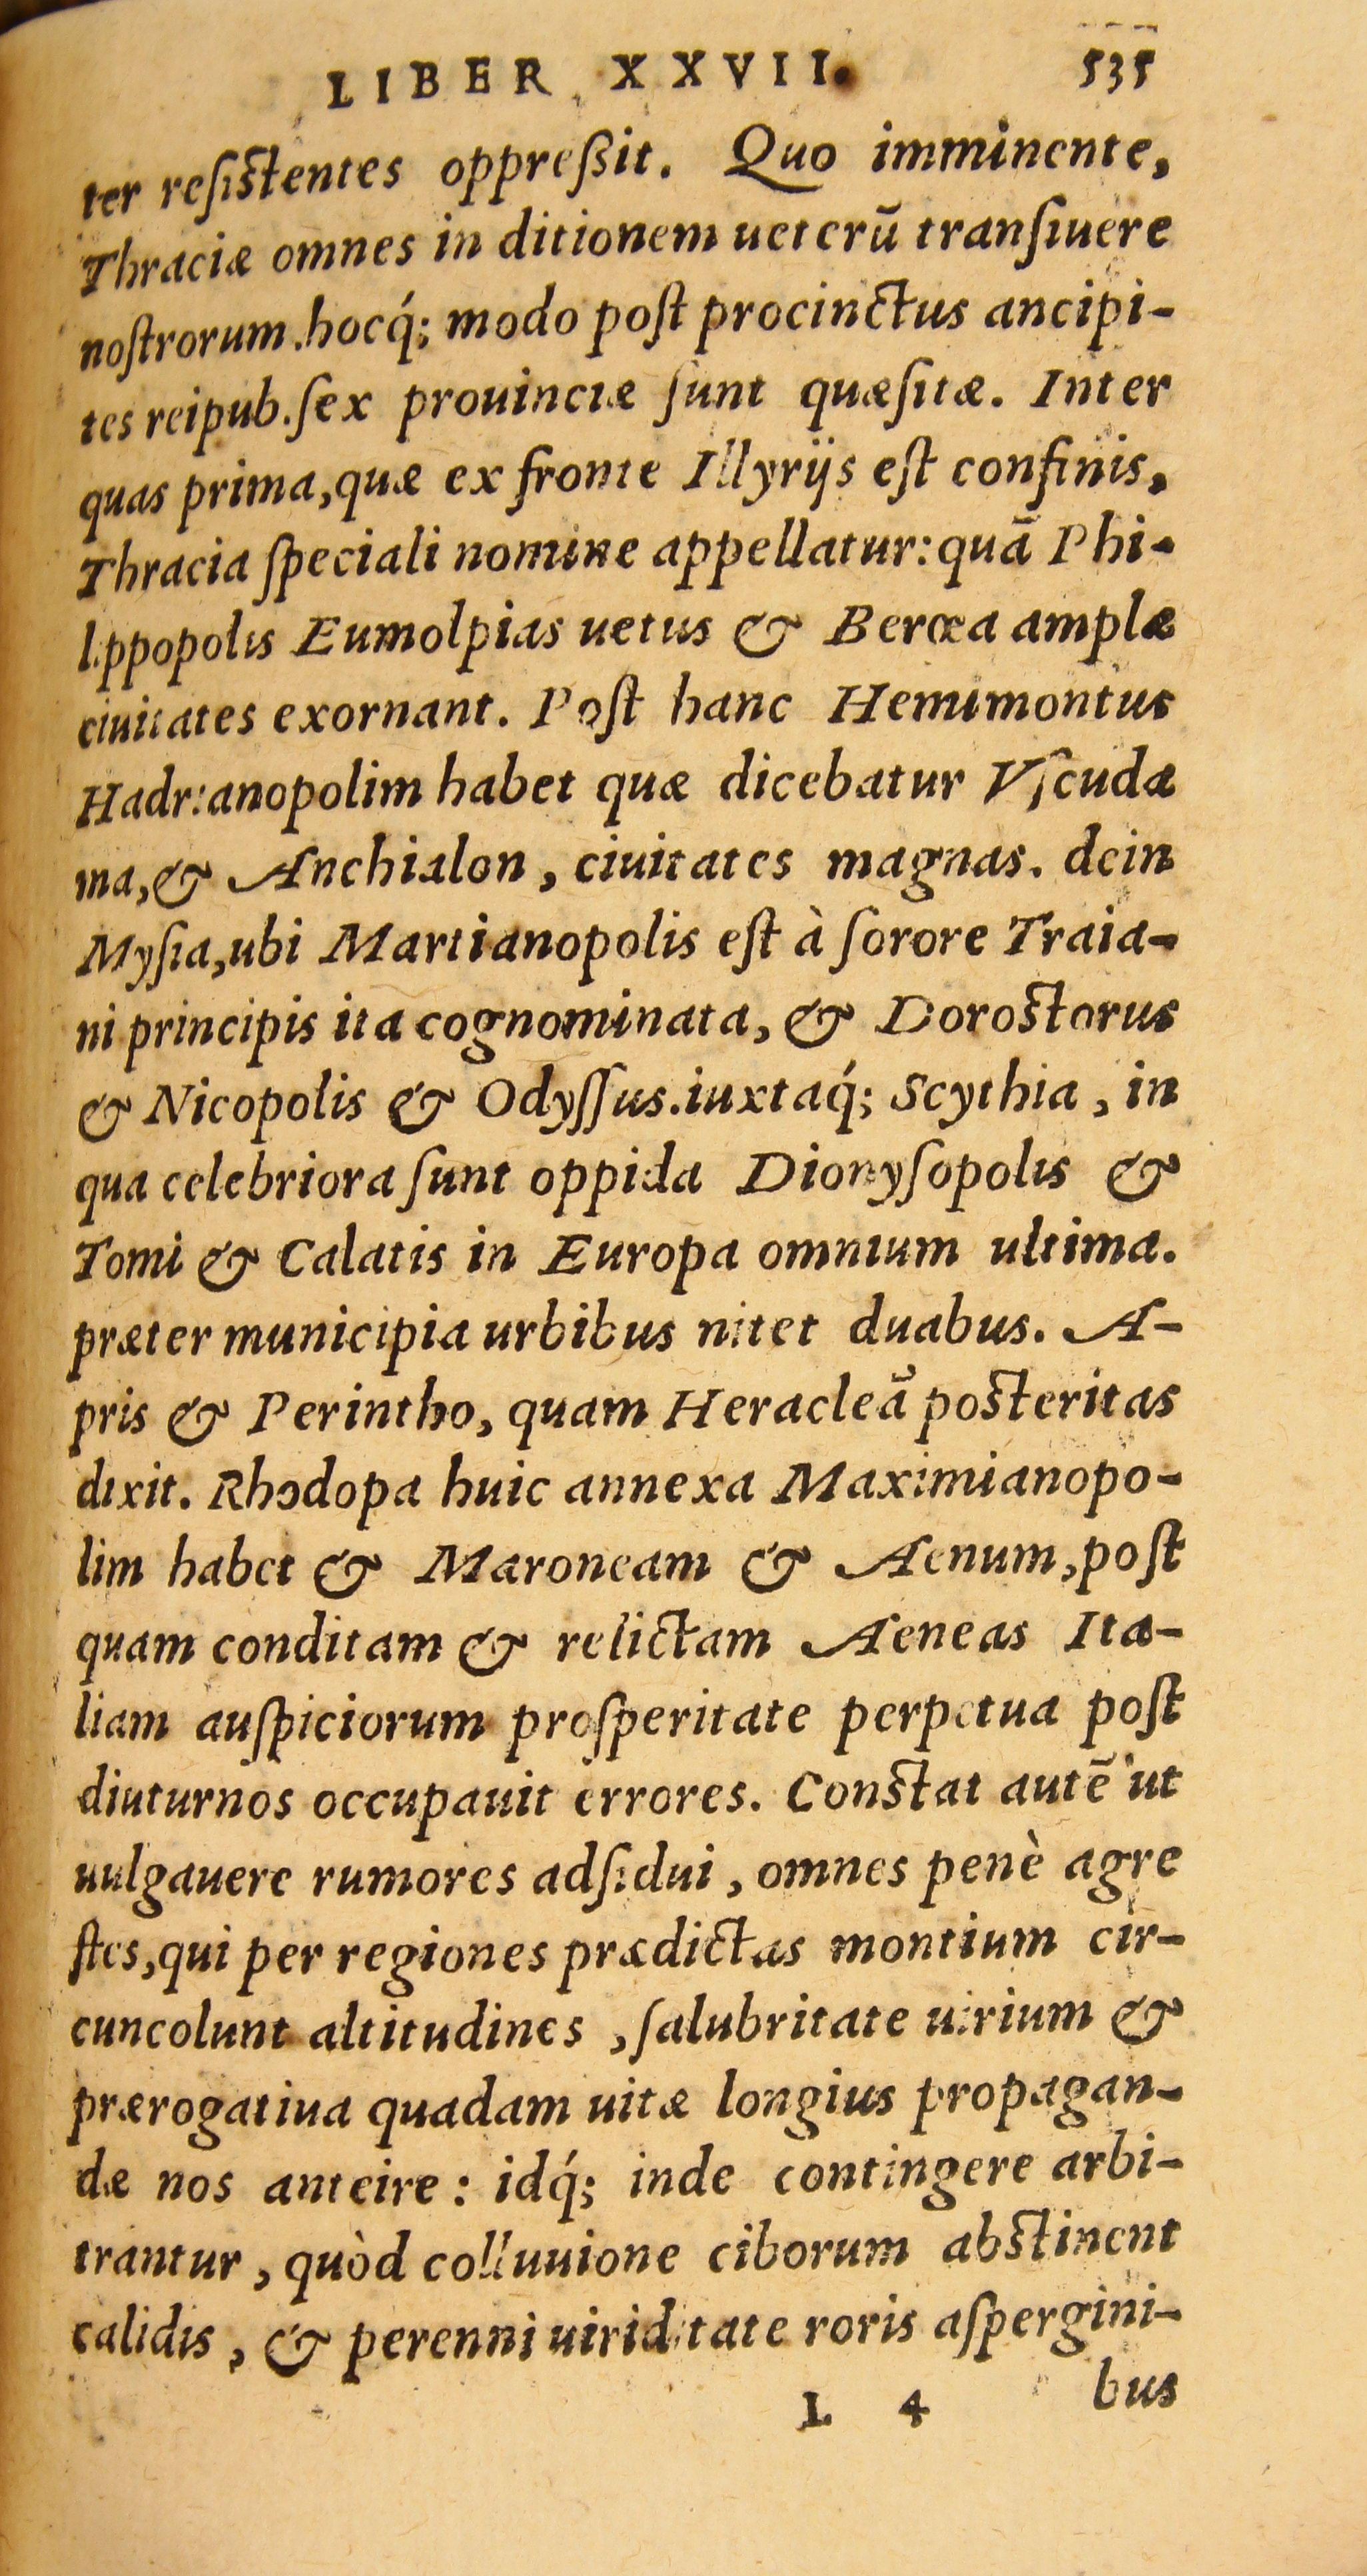 LIBER XXVII. 535
ter reſiſtentes oppreßit. Quo imminente,
Thraciæ omnes in ditionem ueterū tranſiuere
noſtrorum. hocq́; modo poſt procinctus ancipi-
tes reipub. ſex prouinciæ ſunt quæſitæ. Inter
quas prima, quæ ex fronte Illyrijs eſt confinis,
Thracia ſpeciali nomine appellatur: quā Phi-
lippopolis Eumolpias uetus & Berœa amplæ
ciuitates exornant. Poſt hanc Hemimontus
Hadrianopolim habet quæ dicebatur Vſcuda
ma, & Anchialon, ciuitates magnas. dein
Myſia, ubi Martianopolis eſt à ſorore Traia-
ni principis ita cognominata, & Doroſtorus
& Nicopolis & Odyſſus. iuxtaq́; Scythia, in
qua celebriora ſunt oppida Dionyſopolis &
Tomi & Calatis in Europa omnium ultima.
præter municipia urbibus nitet duabus. A-
pris & Perintho, quam Heracleā poſteritas
dixit. Rhodopa huic annexa Maximianopo-
lim habet & Maroneam & Aenum, poſt
quam conditam & relictam Aeneas Ita-
liam auſpiciorum proſperitate perpetua poſt
diuturnos occupauit errores. Conſtat autē ut
uulgauere rumores adſidui, omnes penè agre
ſtes, qui per regiones prædictas montium cir-
cuncolunt altitudines, ſalubritate uirium &
prærogatiua quadam uitæ longius propagan-
dæ nos anteire: idq́; inde contingere arbi-
trantur, quòd colluuione ciborum abſtinent
calidis, & perenni uiriditate roris aſpergini-
L 4 bus